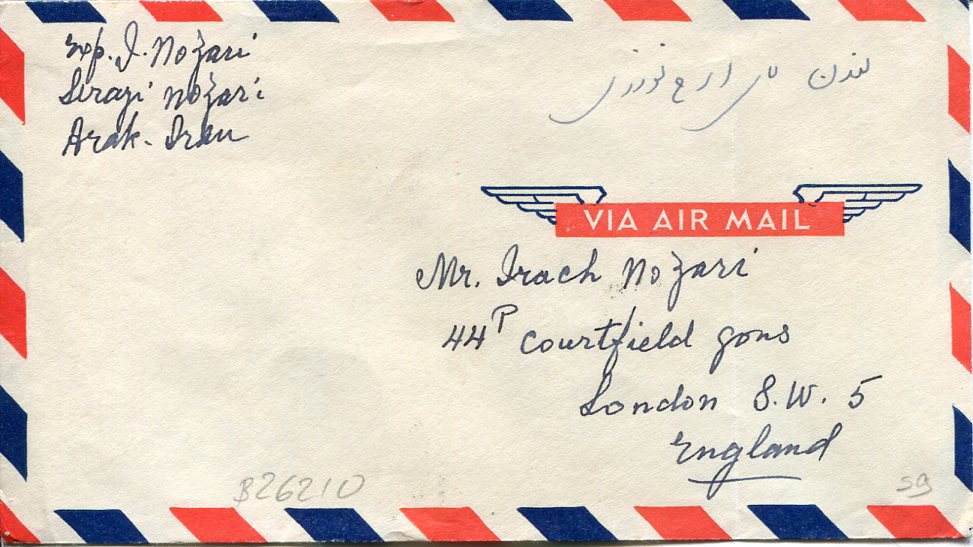 Exp. I. Nozari
Serazi Nozari
Arak - Iran
لندن ایرج نوذری
VIA AIR MAIL
Mr. Irach Nozari
44P Courtfield gons
London S.W. 5
England
B26210